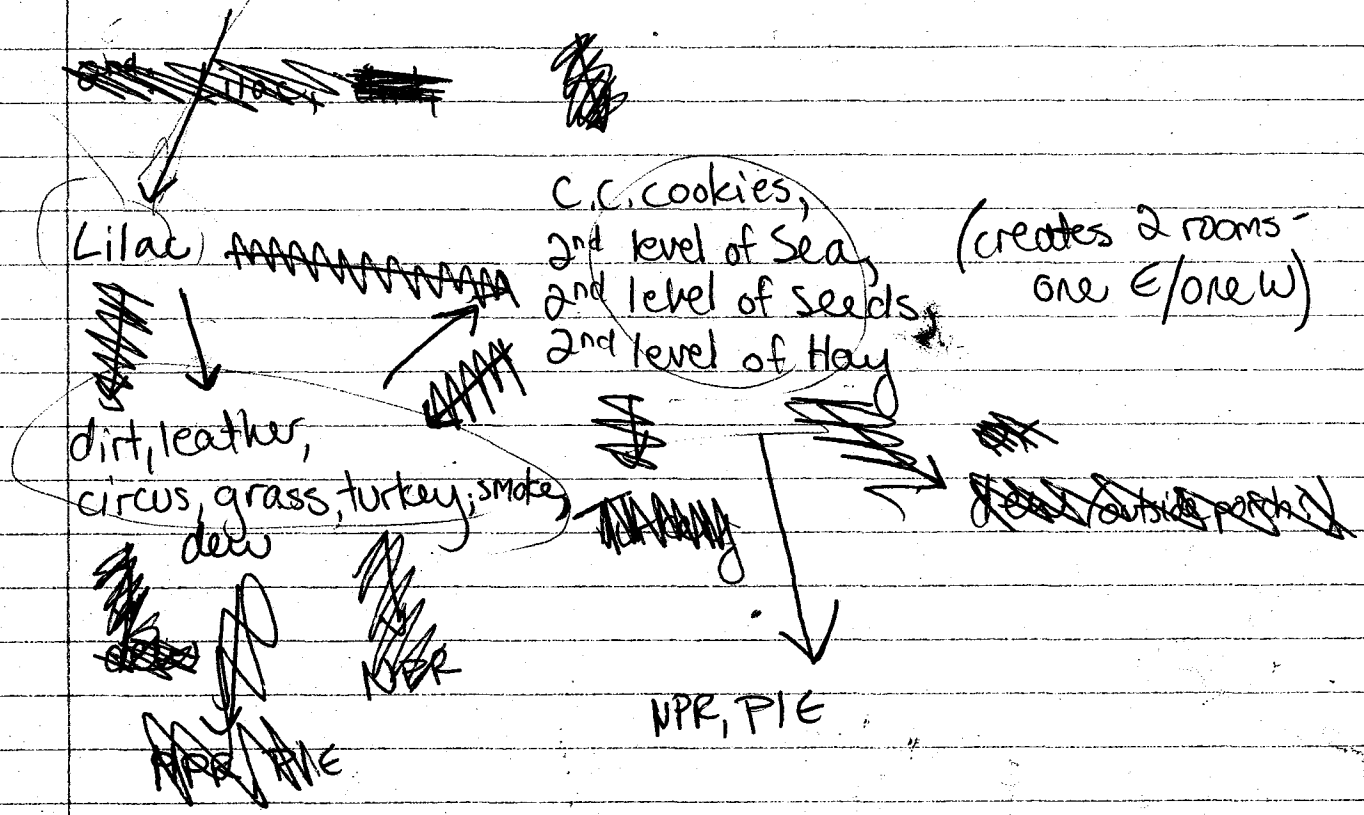 2nd Lilac,
C.C. cookies,
Lilac
2nd level of Sea,
2nd level of seeds,
2nd level of Hay
(creates 2 rooms -
one E/one W)
dirt, leather,
circus, grass, turkey, smoke,
dew
NPR
NPR, PIE
NPR, PIE